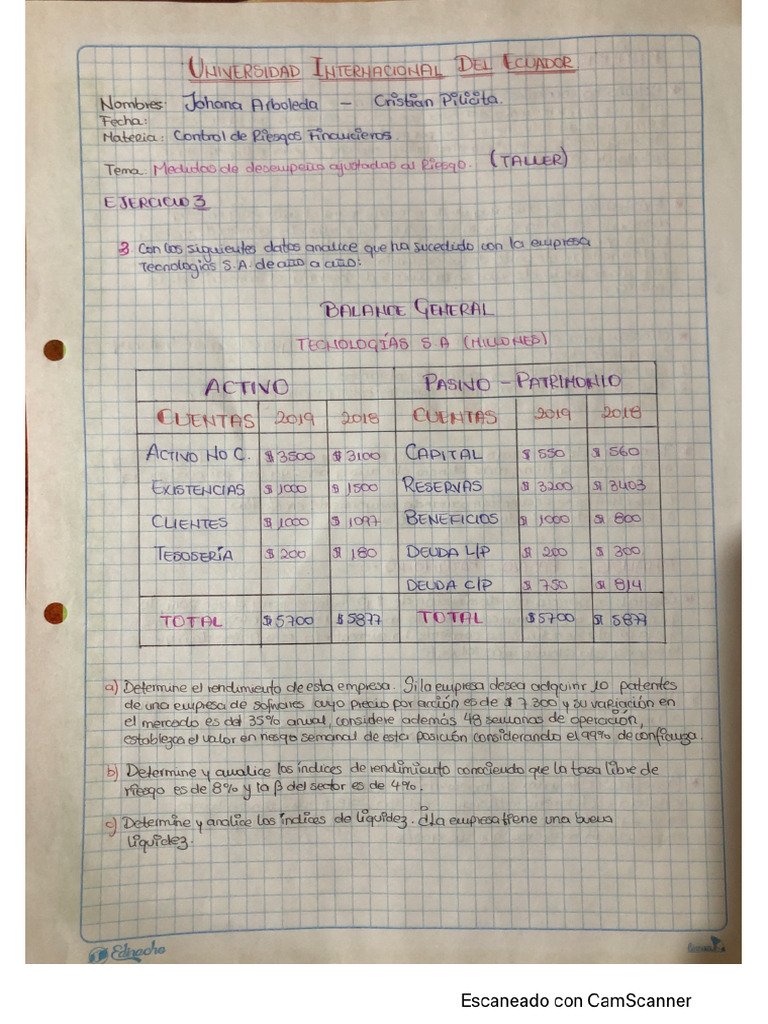 UNIVERSIDAD INTERNACIONAL DEL ECUADOR
Nombres: Johana Arboleda - Cristian Pilicita.
Fecha:
Materia: Control de Riesgos Financieros.
Tema: Medidas de desempeño ajustadas al Riesgo. (TALLER)
EJERCICIO 3
3. Con los siguientes datos analice que ha sucedido con la empresa
Tecnologías S.A. de año a año:
BALANCE GENERAL
TECNOLOGÍAS S A (MILLONES)
ACTIVO PASIVO - PATRIMONIO
CUENTAS 2019 2018 CUENTAS 2019 2018
ACTIVO NO C. $ 3500 $ 3100 CAPITAL $ 550 $ 560
EXISTENCIAS $ 1000 $ 1500 RESERVAS $ 3200 $ 3403
CLIENTES $ 1000 $ 1097 BENEFICIOS $ 1000 $ 800
TESOSERÍA $ 200 $ 180 DEUDA L/P $ 200 $ 300
DEUDA C/P $ 750 $ 814
TOTAL $ 5700 $ 5877 TOTAL $ 5700 $ 5877
a) Determine el rendimiento de esta empresa. Si la empresa desea adquirir 10 patentes
de una empresa de softwares cuyo precio por acción es de $ 7 300 y su variación en
el mercado es del 35% anual, considere además 48 semanas de operación,
establezca el valor en riesgo semanal de esta posición considerando el 99% de confianza.
b) Determine y analice los índices de rendimiento conociendo que la tasa libre de
riesgo es de 8% y la β del sector es de 4%.
c) Determine y analice los índices de liquidez. ¿La empresa tiene una buena
liquidez.
Edinacho
Escaneado con CamScanner